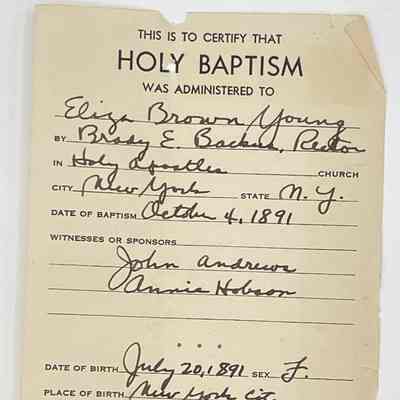 THIS IS TO CERTIFY THAT
HOLY BAPTISM
WAS ADMINISTERED TO
Eliza Brown Young
BY Brady E. Backus, Rector
IN Holy Apostles CHURCH
CITY New York STATE N.Y.
DATE OF BAPTISM October 4, 1891
WITNESSES OR SPONSORS
John Andrews
Annie Hobson
DATE OF BIRTH July 20, 1891 SEX F.
PLACE OF BIRTH New York City